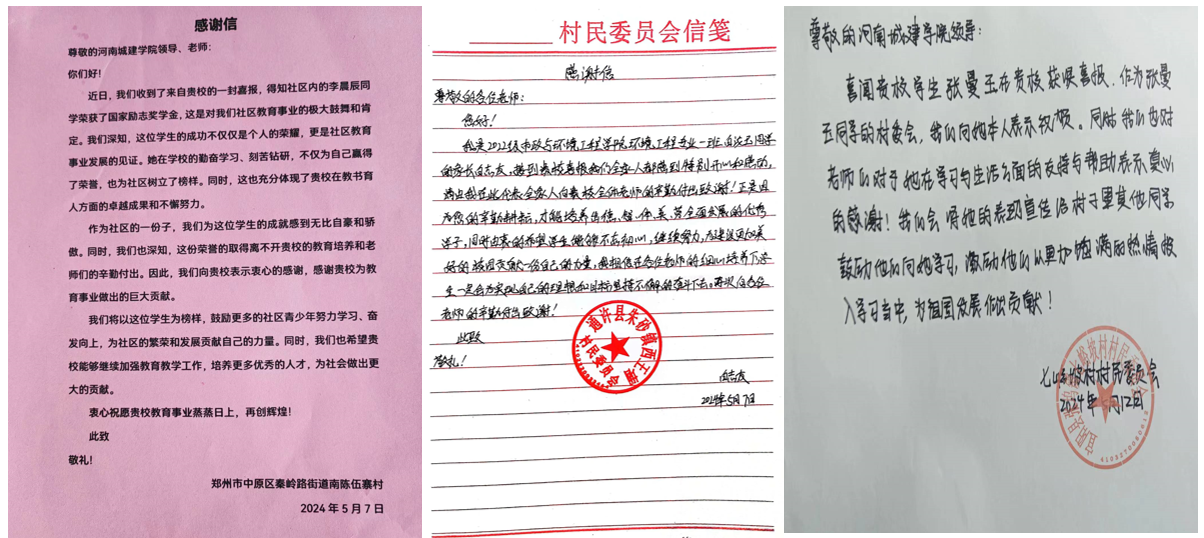 感谢信
尊敬的河南城建学院领导、老师：
你们好！
近日，我们收到了来自贵校的一封喜报，得知社区内的李晨辰同
学荣获了国家励志奖学金，这是对我们社区教育事业的极大鼓舞和肯
定。我们深知，这位学生的成功不仅仅是个人的荣耀，更是社区教育
事业发展的见证。她在学校的勤奋学习、刻苦钻研，不仅为自己赢得
了荣誉，也为社区树立了榜样。同时，这也充分体现了贵校在教书育
人方面的卓越成果和不懈努力。
作为社区的一份子，我们为这位学生的成就感到无比自豪和骄
傲。同时，我们也深知，这份荣誉的取得离不开贵校的教育培养和老
师们的辛勤付出。因此，我们向贵校表示衷心的感谢，感谢贵校为教
育事业做出的巨大贡献。
我们将以这位学生为榜样，鼓励更多的社区青少年努力学习、奋
发向上，为社区的繁荣和发展贡献自己的力量。同时，我们也希望贵
校能够继续加强教育教学工作，培养更多优秀的人才，为社会做出更
大的贡献。
衷心祝愿贵校教育事业蒸蒸日上，再创辉煌！
此致
敬礼！
郑州市中原区秦岭路街道南陈伍寨村
2024 年 5 月 7 日
村民委员会信笺
感谢信
尊敬的各位老师：
您好！
我是2022级市政与环境工程学院环境工程专业一班
的家长白志友，接到贵校喜报我们全家人都感到特别开心和感动，
在此代表全家人向贵校全体老师的辛勤付出致谢！正是因
为您的辛勤耕耘，才能培养出德、智、体、美、劳全面发展的优秀
学子，同时
好的校园贡献一份自己的力量，我相信在各位老师的细心培养下学
生一定会为实现自己的理想和目标坚持不懈的奋斗下去。再次向各位
老师的辛勤付出致谢！
此致
敬礼！
通许县朱砂镇西王
村民委员会
白志友
2024年5月7日
尊敬的河南城建学院领导：
喜闻贵校学生张曼玉在贵校获得喜报，作为张曼
玉同学的村委会，我们向她本人表示祝贺。同时我们也对
老师们对于她在学习和生活方面的支持与帮助表示衷心
的感谢！我们会将她的表现宣传给村子里其他同学
鼓励他们向她学习，激励他们以更加饱满的热情投
入学习当中，为祖国发展做出贡献！
坡村村民委员会
2024年 月12日